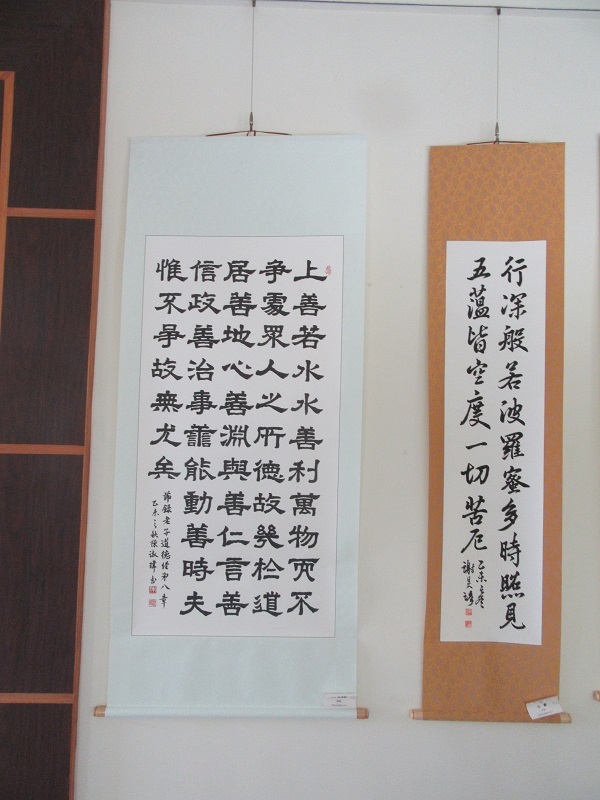 上善若水水善利萬物而不
爭處眾人之所德故幾於道
居善地心善淵與善仁言善
信政善治事善能動善時夫
惟不爭故無尤矣
節錄老子道德經第八章
乙未之秋陳淑書
行深般若波羅蜜多時照見
五蘊皆空度一切苦厄
乙未之冬
謝